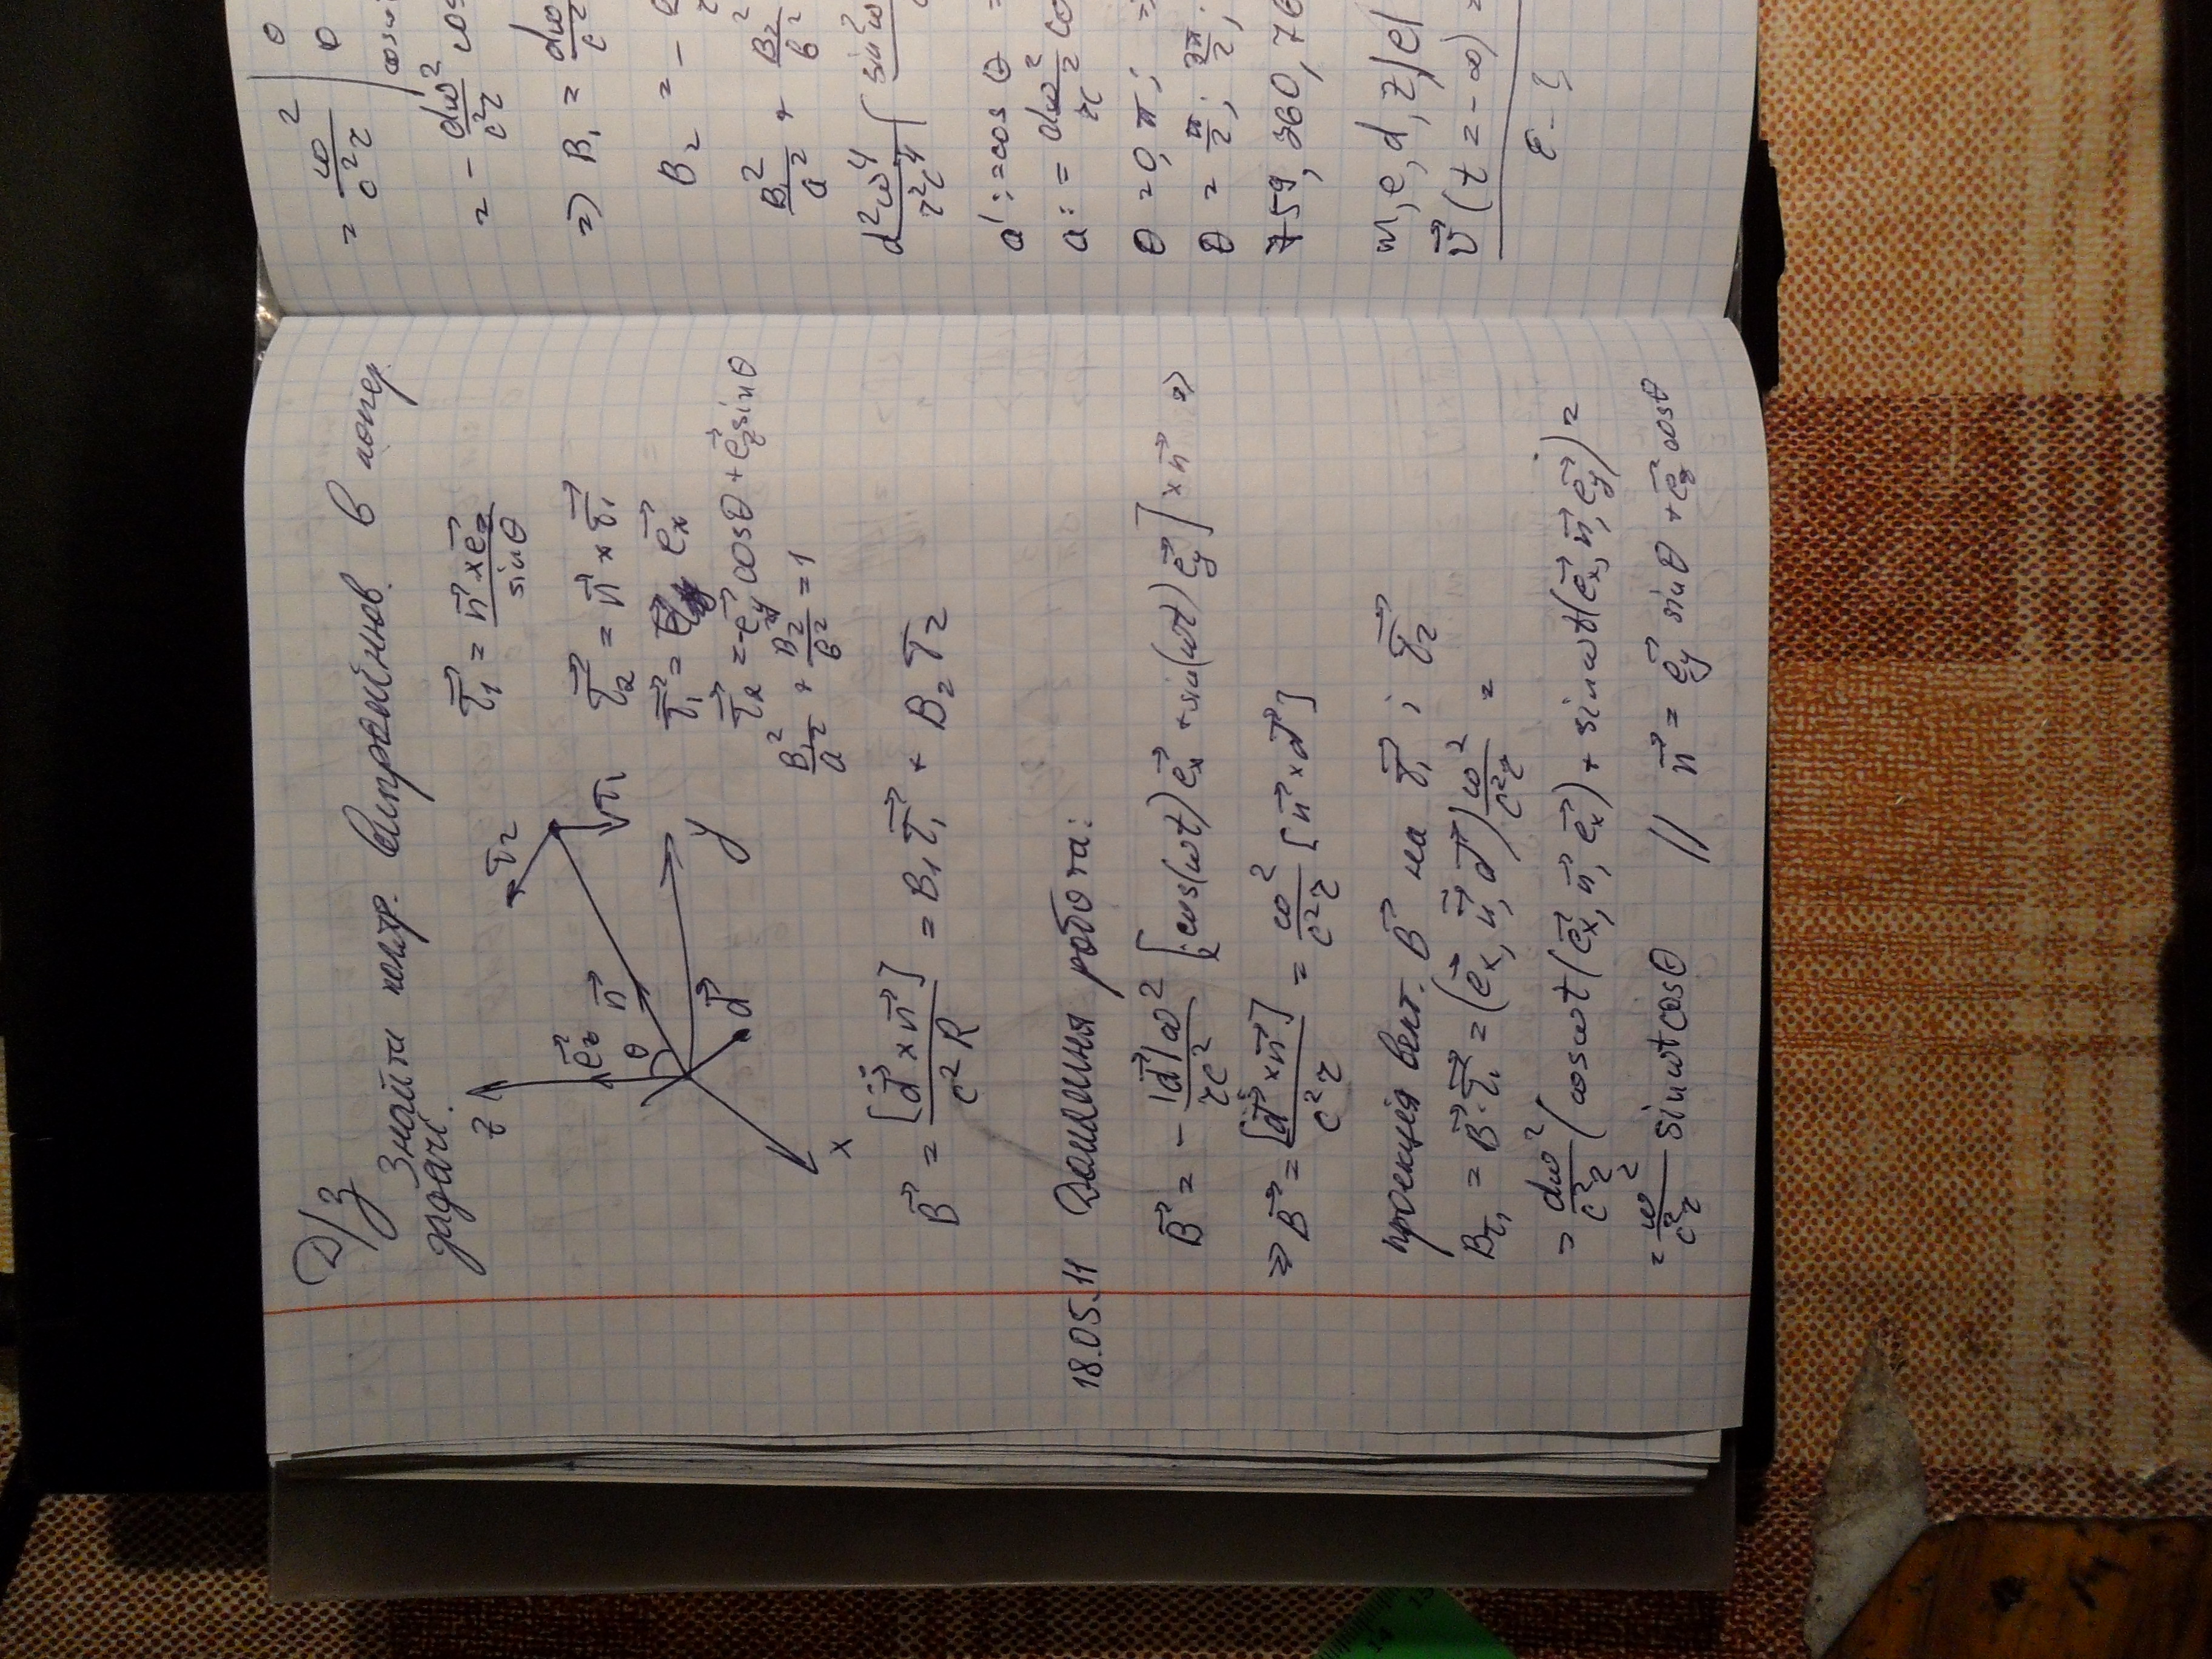 Д/З
Знайти поляр. випромінюв. в попер.
задачі.
z
x
y
e⃗z n⃗ θ d⃗ τ⃗₂ τ⃗₁
τ⃗₁ = n⃗ × e⃗z / sinθ
τ⃗₂ = n⃗ × τ⃗₁
τ⃗₁ = e⃗x
τ⃗₂ = -e⃗y cosθ + e⃗z sinθ
B₁²/a² + B₂²/b² = 1
B⃗ = [d̈⃗ × n⃗] / c²R = B₁τ⃗₁ + B₂τ⃗₂
18.05.11 Домашня робота:
B⃗ = - |d⃗|ω²/rc² [cos(ωt) e⃗x + sin(ωt) e⃗y] × n⃗ ⇒
⇒ B⃗ = [d̈⃗ × n⃗] / c²r = ω²/c²r [n⃗ × d⃗]
проекція вект. B⃗ на τ⃗₁ і τ⃗₂
Bτ₁ = B⃗·τ⃗₁ = (e⃗x, n⃗, d⃗) ω²/c²r =
= dω²/c²r (cosωt (e⃗x, n⃗, e⃗x) + sinωt (e⃗x, n⃗, e⃗y)) =
= ω²/c²r sinωt cosθ // n⃗ = e⃗y sinθ + e⃗z cosθ
= ω²/c²r
= - dω²/c²r cos
⇒ B₁ = dω²/c²
B₂ = -
B₁²/a² + B₂²/b²
d²ω⁴/r²c⁴ ( sin²ω
a' := cos θ
a := dω²/rc² co
θ = 0, π; ⇒
θ = π/2; 3π/2;
759, 360, 76
m, e, d, z/e/
v⃗ (t = -∞) =
ε - ?